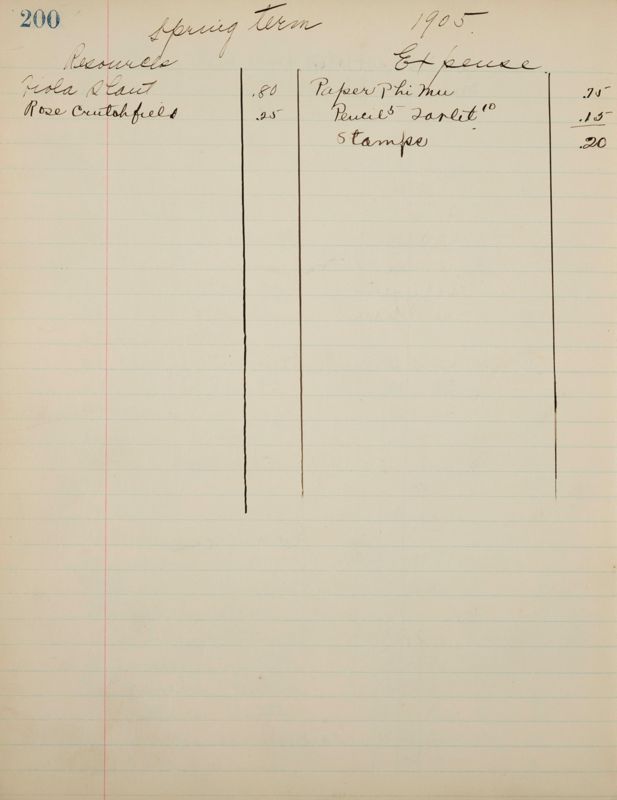 200
Spring term 1905
Resources Expense.
Viola .80 Paper Phi Mu .75
Rose Crutchfield .25 Pencil 5 10 .15
Stamps .20